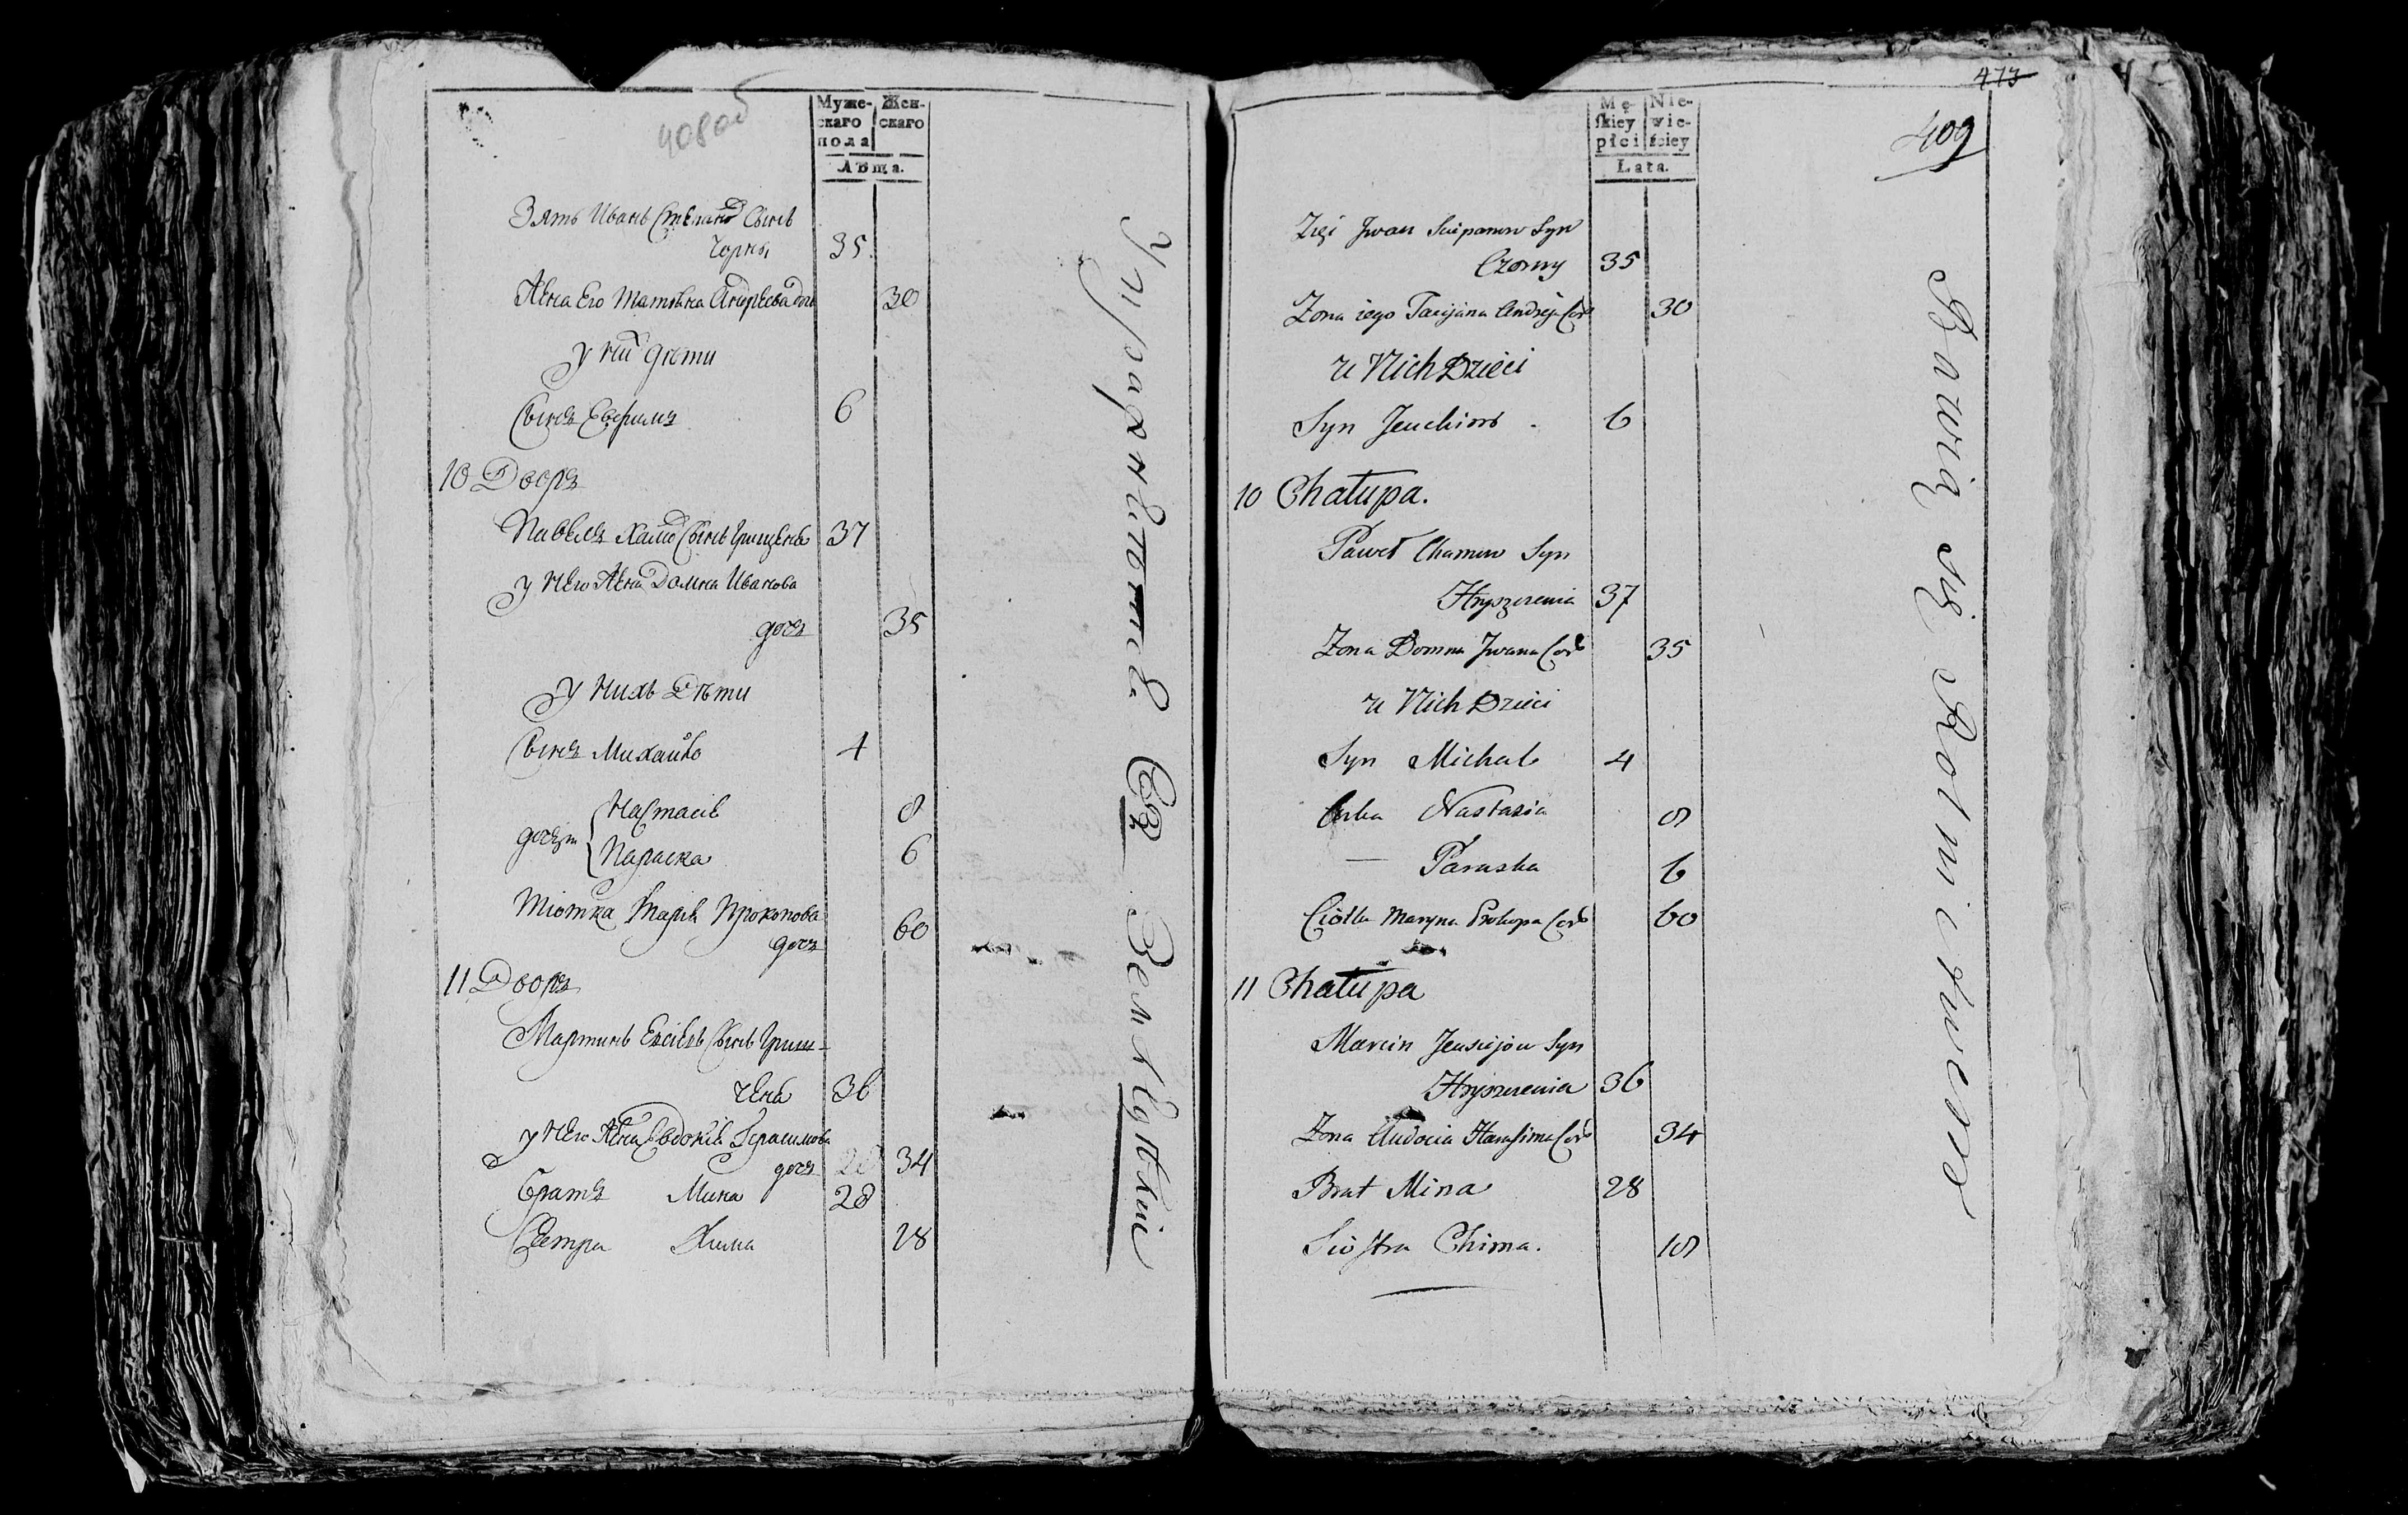 408об
Муже- Жен-
скаго скаго
пола
Лѣта.
Зять Иванъ Степановъ Сынъ
Чорны 35.
Жена Его Татьяна Андреева дочь 30
у них дѣти
Сынъ Евфимъ 6
10 Дворъ
Павелъ Хамов Сынъ Грищеня 37
у него Жена Домна Иванова
дочъ 35
у нихъ Дѣти
Сынъ Михайло 4
Настасія 8
дочери
Параска 6
Тіотка Марія Прокопова 60
дочъ
11 Дворъ
Мартинъ Сынъ Гриш-
ченя 36
у него Жена Евдокія Герасимова
дочъ 34
Братъ Мина 28
Сестра Хима 18
Упражняются въ Земледѣліи
473
409
Mę- Nie-
skiey wie-
płci ściey
Lata.
Zięć Jwan Sciepanow Syn
Czorny 35
Zona iego Tacijana Andreja Cor 30
u Nich Dzieci
Syn Jeuchim 6
10 Chałupa.
Paweł Chamow Syn
Hryszczenia 37
Zona Domna Jwana Cor 35
u Nich Dzieci
Syn Michał 4
Corka Nastazia 8
— Paraska 6
Ciotka Maryna Prokopa Cor 60
11 Chałupa
Marcin Jeusiejow Syn
Hryszczenia 36
Zona Audocia Harasima Cor 34
Brat Mina 28
Siostra Chima. 18
Bawią się Rolnictwem